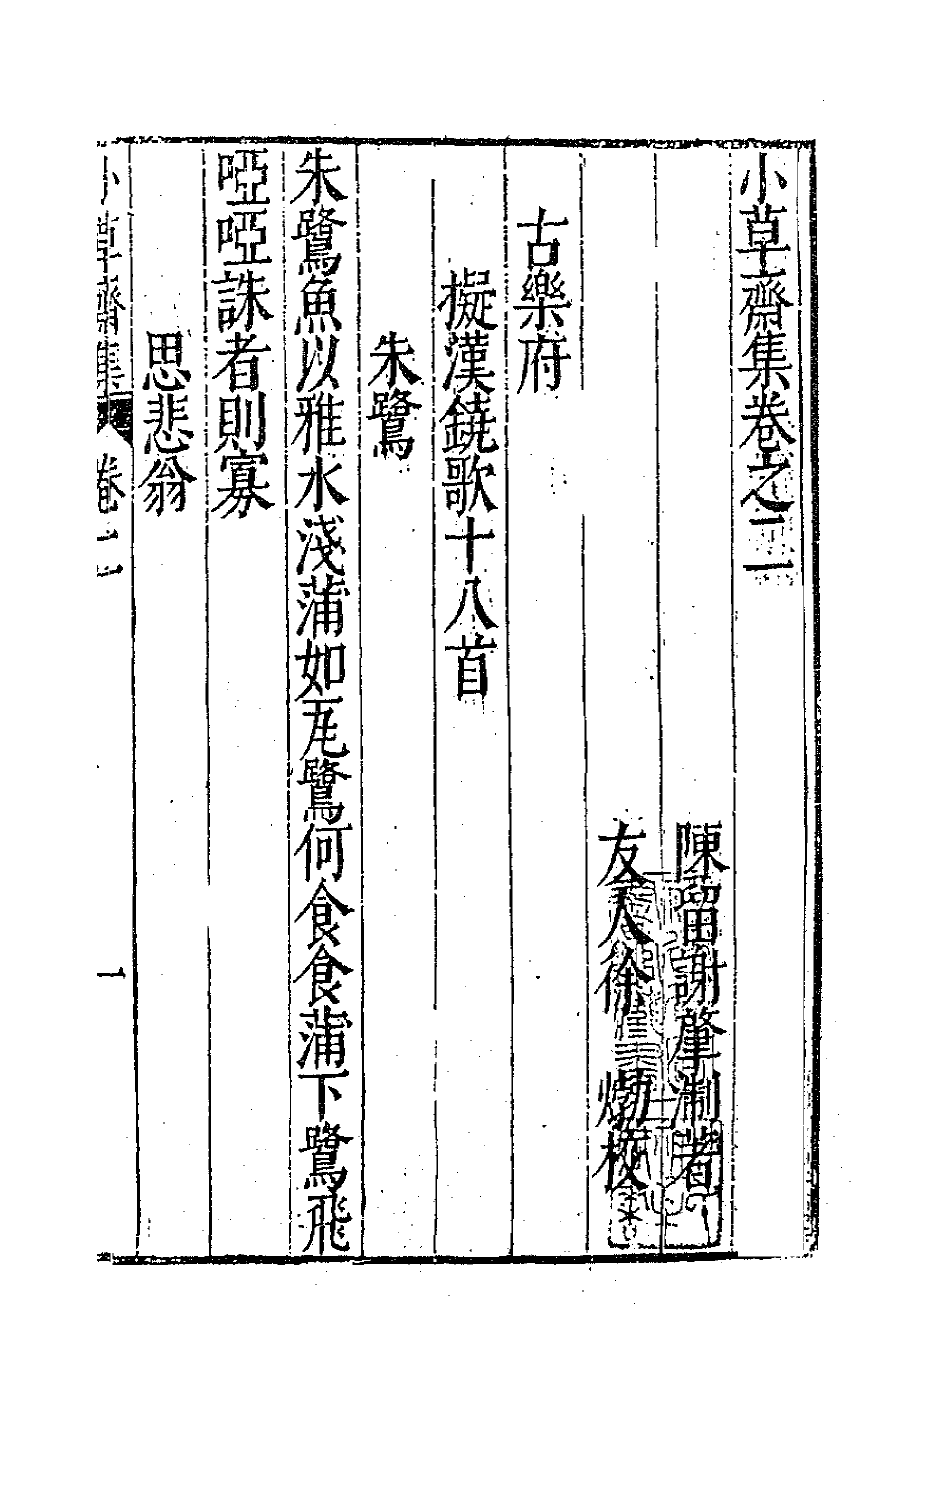 小草齋集卷之二
陳留謝肇淛著
友人徐𤊹校
古樂府
擬漢鐃歌十八首
朱鷺
朱鷺魚以雅水淺蒲如瓦鷺何食食蒲下鷺飛
啞啞誅者則寡
思悲翁
小草齋集 卷二 一